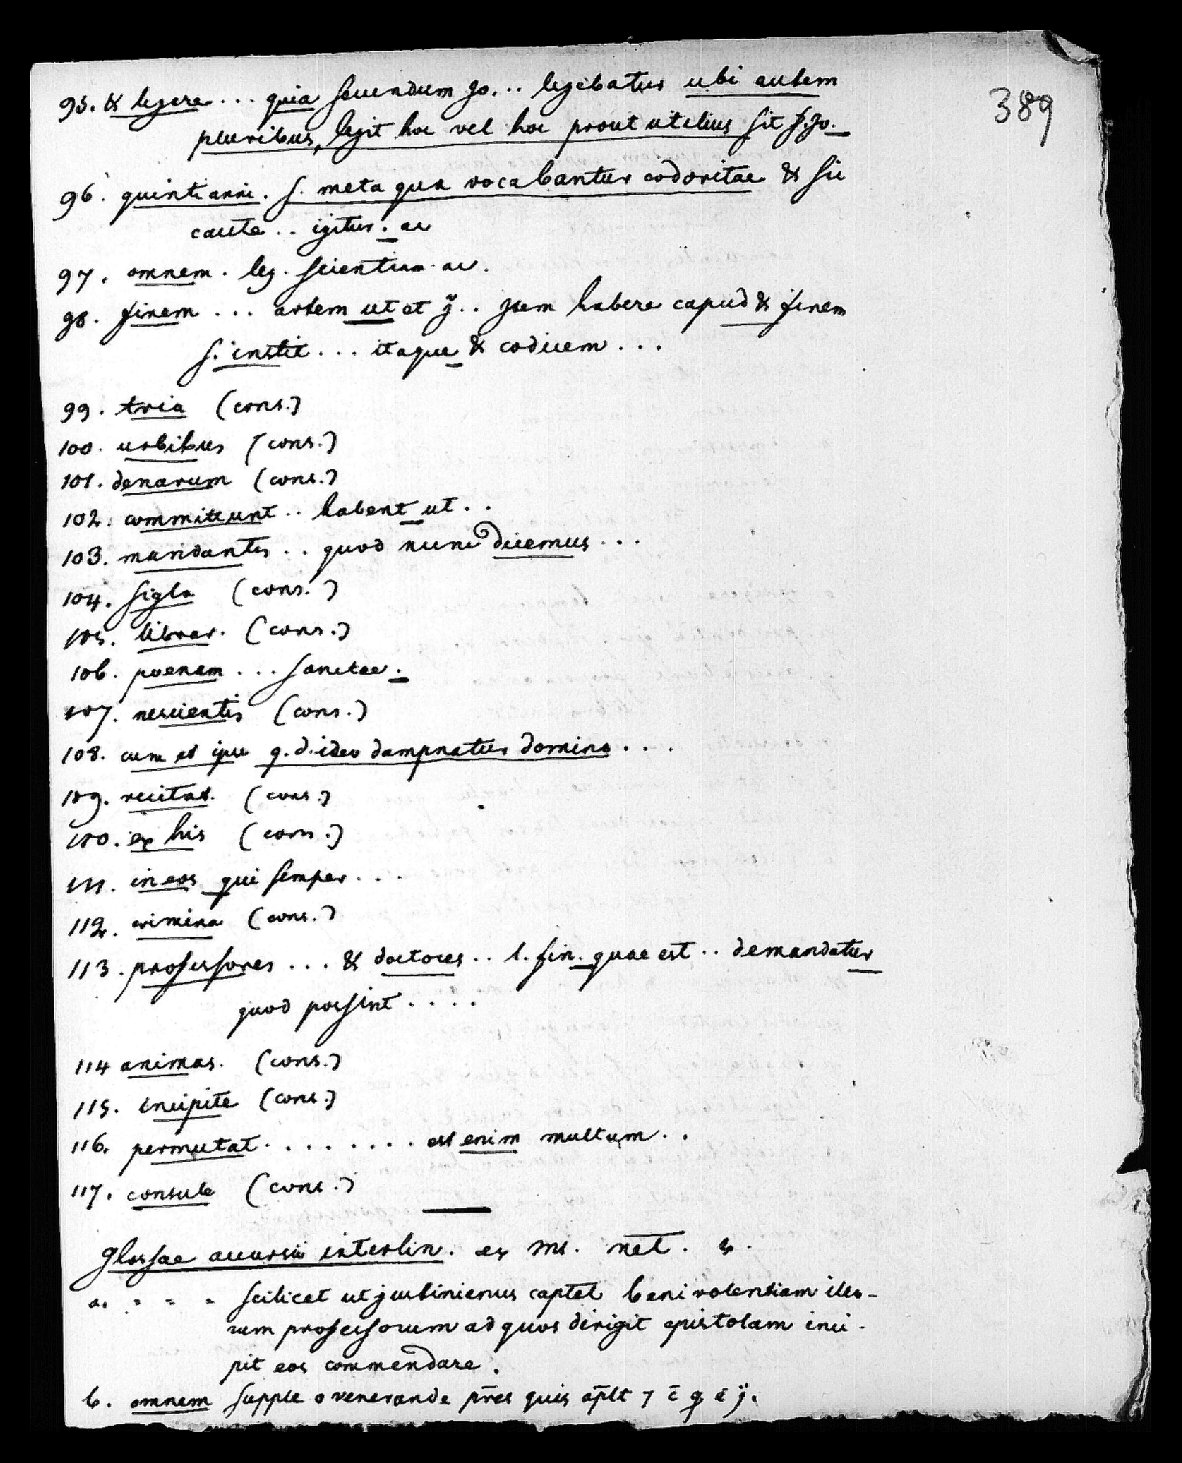 389
95. & legere ... quia secundum Jo... legebatur ubi autem
pluribus, legit hoc vel hoc prout utilius sit s. Jo.
96. quinti anni. s. meta qua vocabantur codoritae & sic
caute .. igitur. ac
97. omnem. leg. scientiam ac.
98. finem ... artem ut et .. rem habere capud & finem
s. instit ... itaque & codicem ...
99. tria (cons.)
100. urbibus (cons.)
101. denarum (cons.)
102. committunt .. habent ut ..
103. mandantes .. quod nunc dicemus ...
104. sigla (cons.)
105. librar. (cons.)
106. poenam ... sanctae.
107. nescientis (cons.)
108. cum et ipse q. d. ideo dampnatur domino ...
109. recitat. (cons.)
110. ex his (cons.)
111. in eos qui semper ...
112. crimina (cons.)
113. professores ... & doctores .. l. fin. quae est .. demandatur
quod possint ....
114 animas. (cons.)
115. incipite (cons.)
116. permutat ........ est enim multum ..
117. consule (cons.)
Glossae accursii interlin. ex ms. net. 
a. " " " scilicet ut justinienus captet benivolentiam illo-
rum professorum ad quos dirigit epistolam inci-
pit eos commendare.
b. omnem supple o venerande pres quis